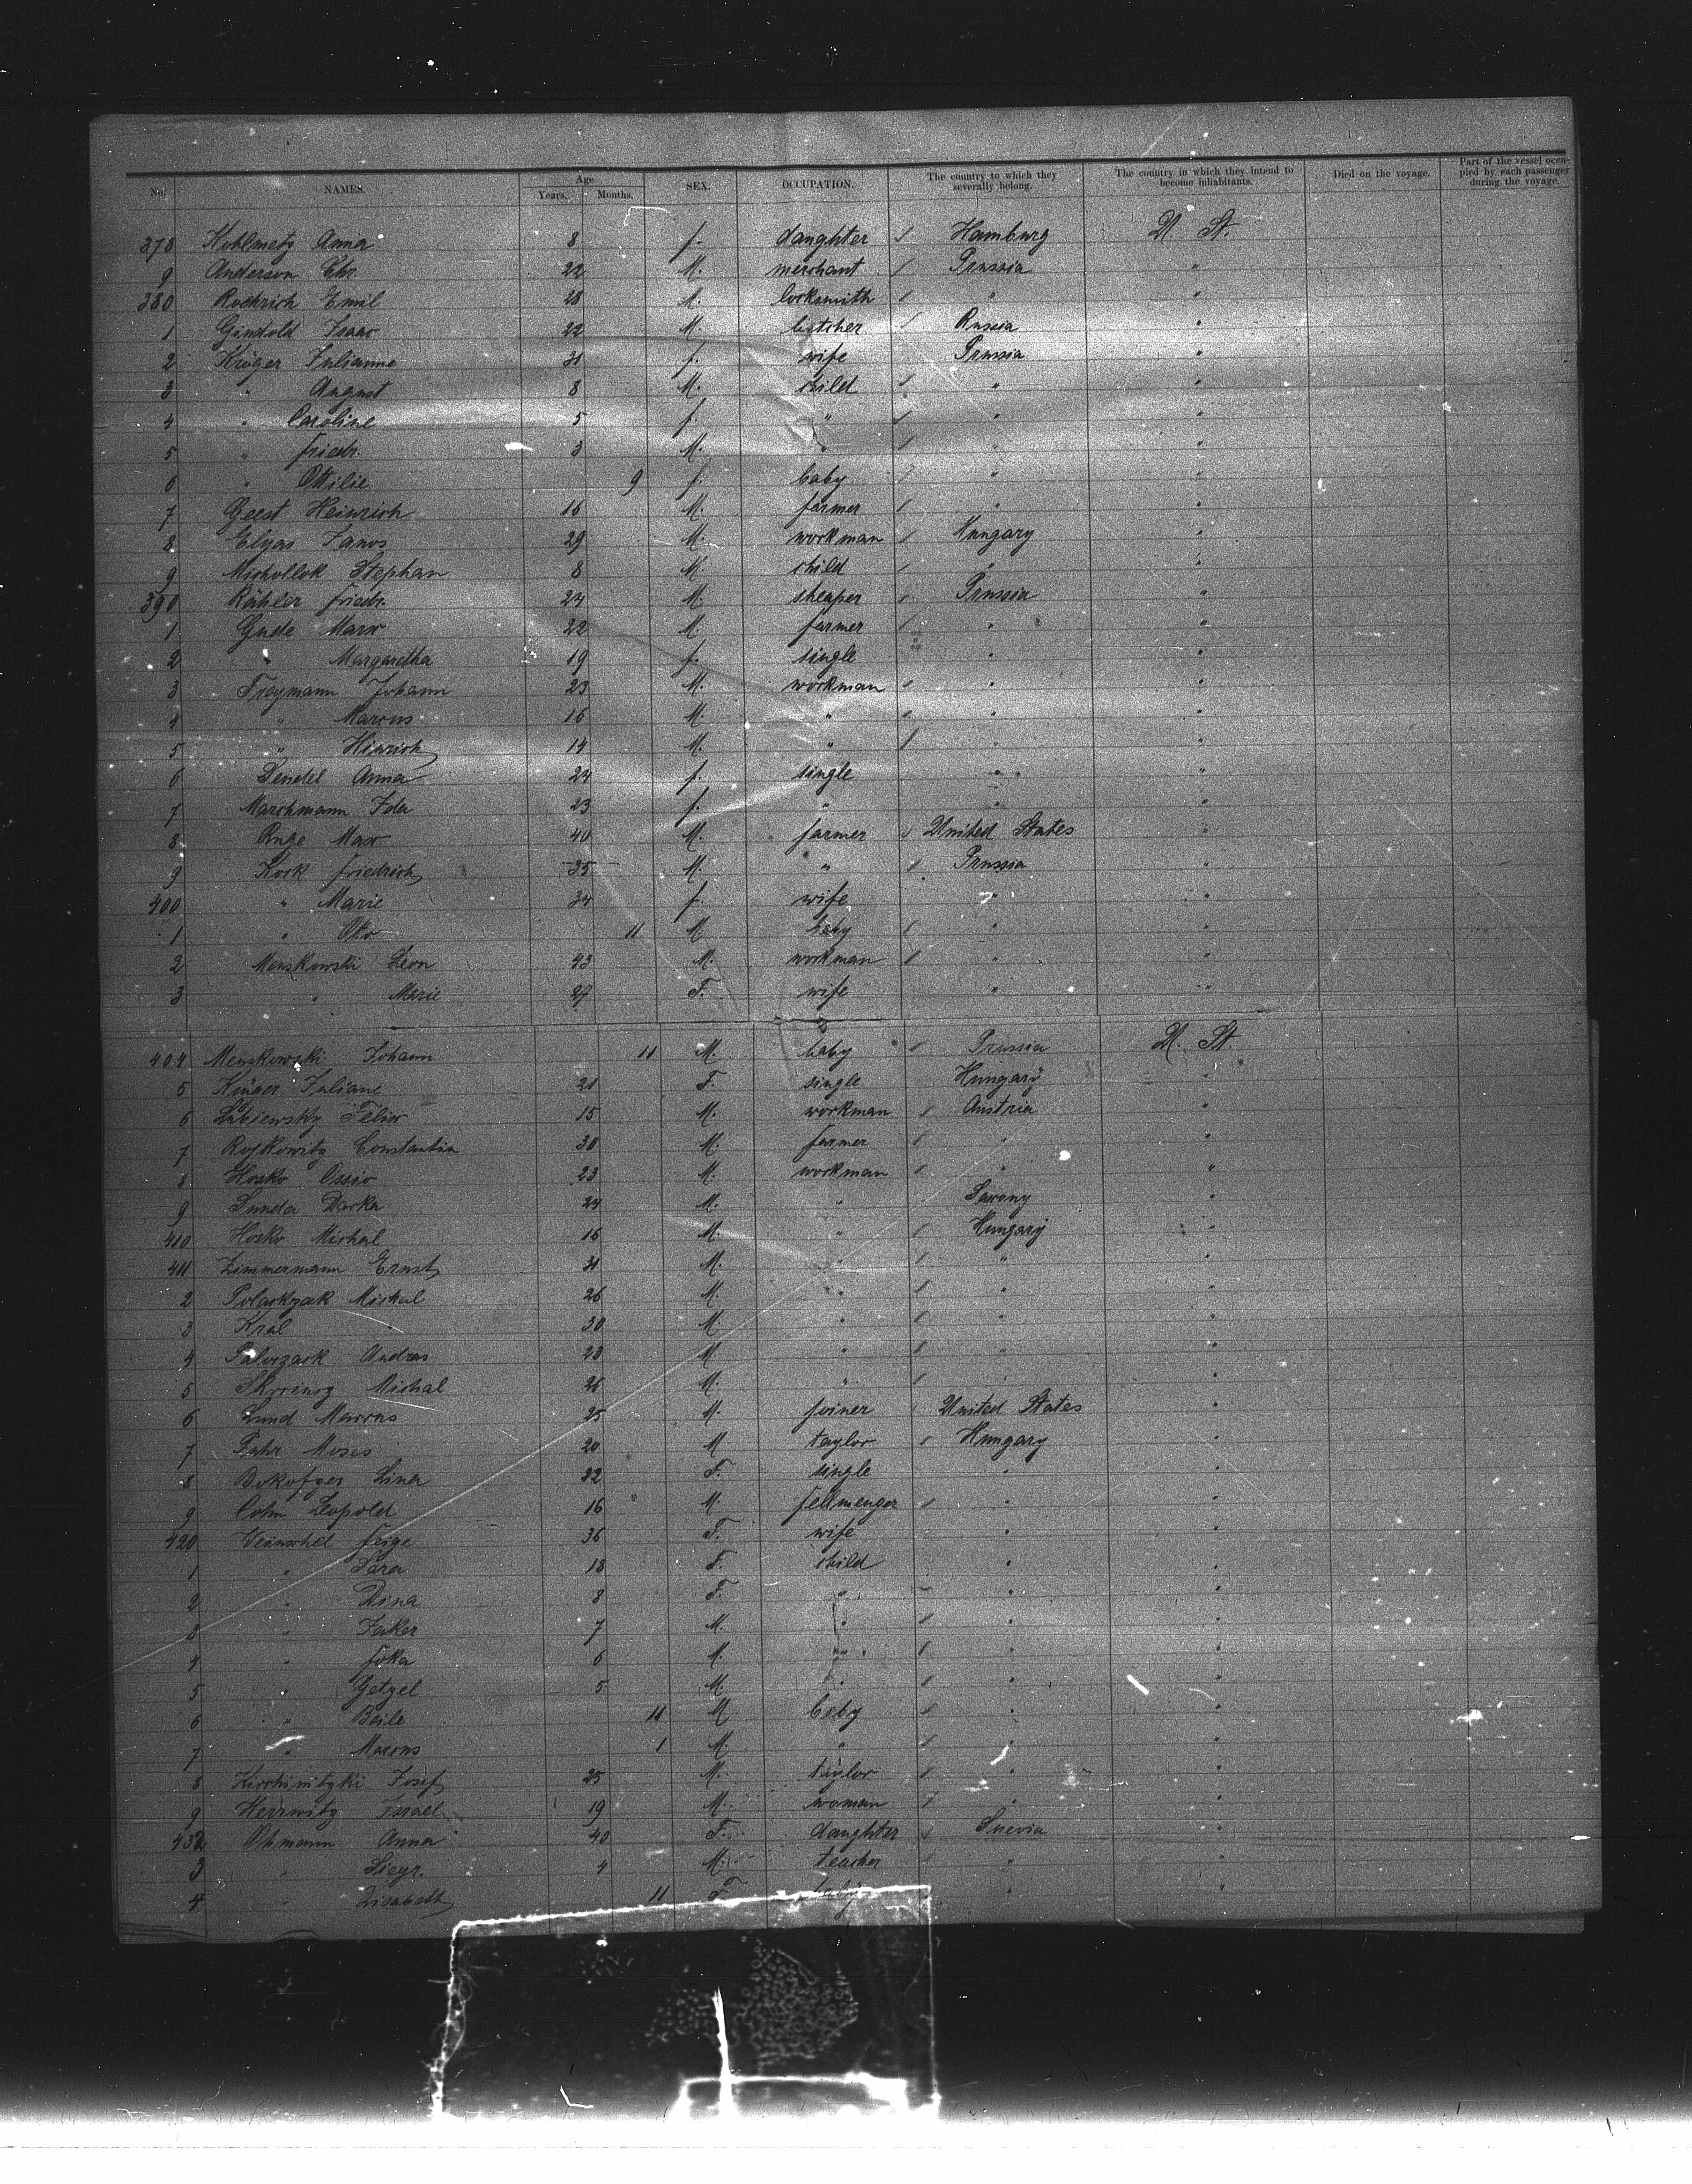 No. NAMES. Age Years. Months. SEX. OCCUPATION. The country to which they severally belong. The country in which they intend to become inhabitants. Died on the voyage. Part of the vessel occupied by each passenger during the voyage.
378 Kohlmetz Anna 8 f. daughter Hamburg U St.
9 Anderson Chr. 22 M. merchant Prussia "
380 Roehrich Emil 28 M. locksmith " "
1 Gindold Isaac 22 M. butcher Russia "
2 Kröger Julianne 31 f. wife Prussia "
3 " August 8 M. child " "
4 " Caroline 5 f. " " "
5 " Friedr. 3 M. " " "
6 " Ottilie 9 f. baby " "
7 Geest Heinrich 16 M. farmer " "
8 Elyas Janos 29 M. workman Hungary "
9 Michollok Stephan 8 M. child " "
390 Kähler Friedr. 24 M. sheaper Prussia "
1 Gude Marx 22 M. farmer " "
2 " Margaretha 19 f. single " "
3 Freymann Johann 23 M. workman " "
4 " Marcus 16 M. " " "
5 " Hinrich 14 M. " " "
6 Dendel Anna 24 f. single " "
7 Marchmann Ida 23 f. " " "
8 Ruge Max 40 M. farmer United States "
9 Kock Friedrich 35 M. " Prussia "
400 " Marie 34 f. wife " "
1 " Otto 11 M baby " "
2 Menskowski Leon 43 M. workman " "
3 " Marie 27 F. wife " "
404 Menskowski Johann 11 M. baby Prussia U. St.
5 Krüger Juliane 21 F. single Hungary "
6 Labiewsky Felix 15 M. workman Austria "
7 Rojkowitz Constantin 30 M. farmer " "
8 Hosko Ossio 23 M. workman " "
9 Sunda Darka 24 M. " Saxony "
410 Hosko Michal 16 M. " Hungary "
411 Zimmermann Ernst 31 M. " " "
2 Polaskzak Michal 26 M. " " "
3 Kral " 30 M " " "
4 Palorzack Andras 28 M " " "
5 Michal 26 M. " " "
6 Lund Marcus 25 M. joiner United States "
7 Fuhr Moses 20 M taylor Hungary "
8 Bokofzer Lina 22 F. single " "
9 Cohn Leopold 16 M. fellmenger " "
420 Weinschel Feige 36 F. wife " "
1 " Sara 18 F. child " "
2 " Dina 8 F. " " "
2 " Janker 7 M. " " "
4 " Foka 6 M. " " "
5 " Getzel 5 M. " " "
6 " Beile 11 M baby " "
7 " Marcus 1 M. " " "
8 Kirschinitzki Josef 25 M. taylor " "
9 Herrwitz Israel 19 M. woman " "
432 Ohmann Anna 40 F. daughter Suevia "
3 " Siegr. 4 M. teacher " "
4 " Lisabeth 11 F baby " "